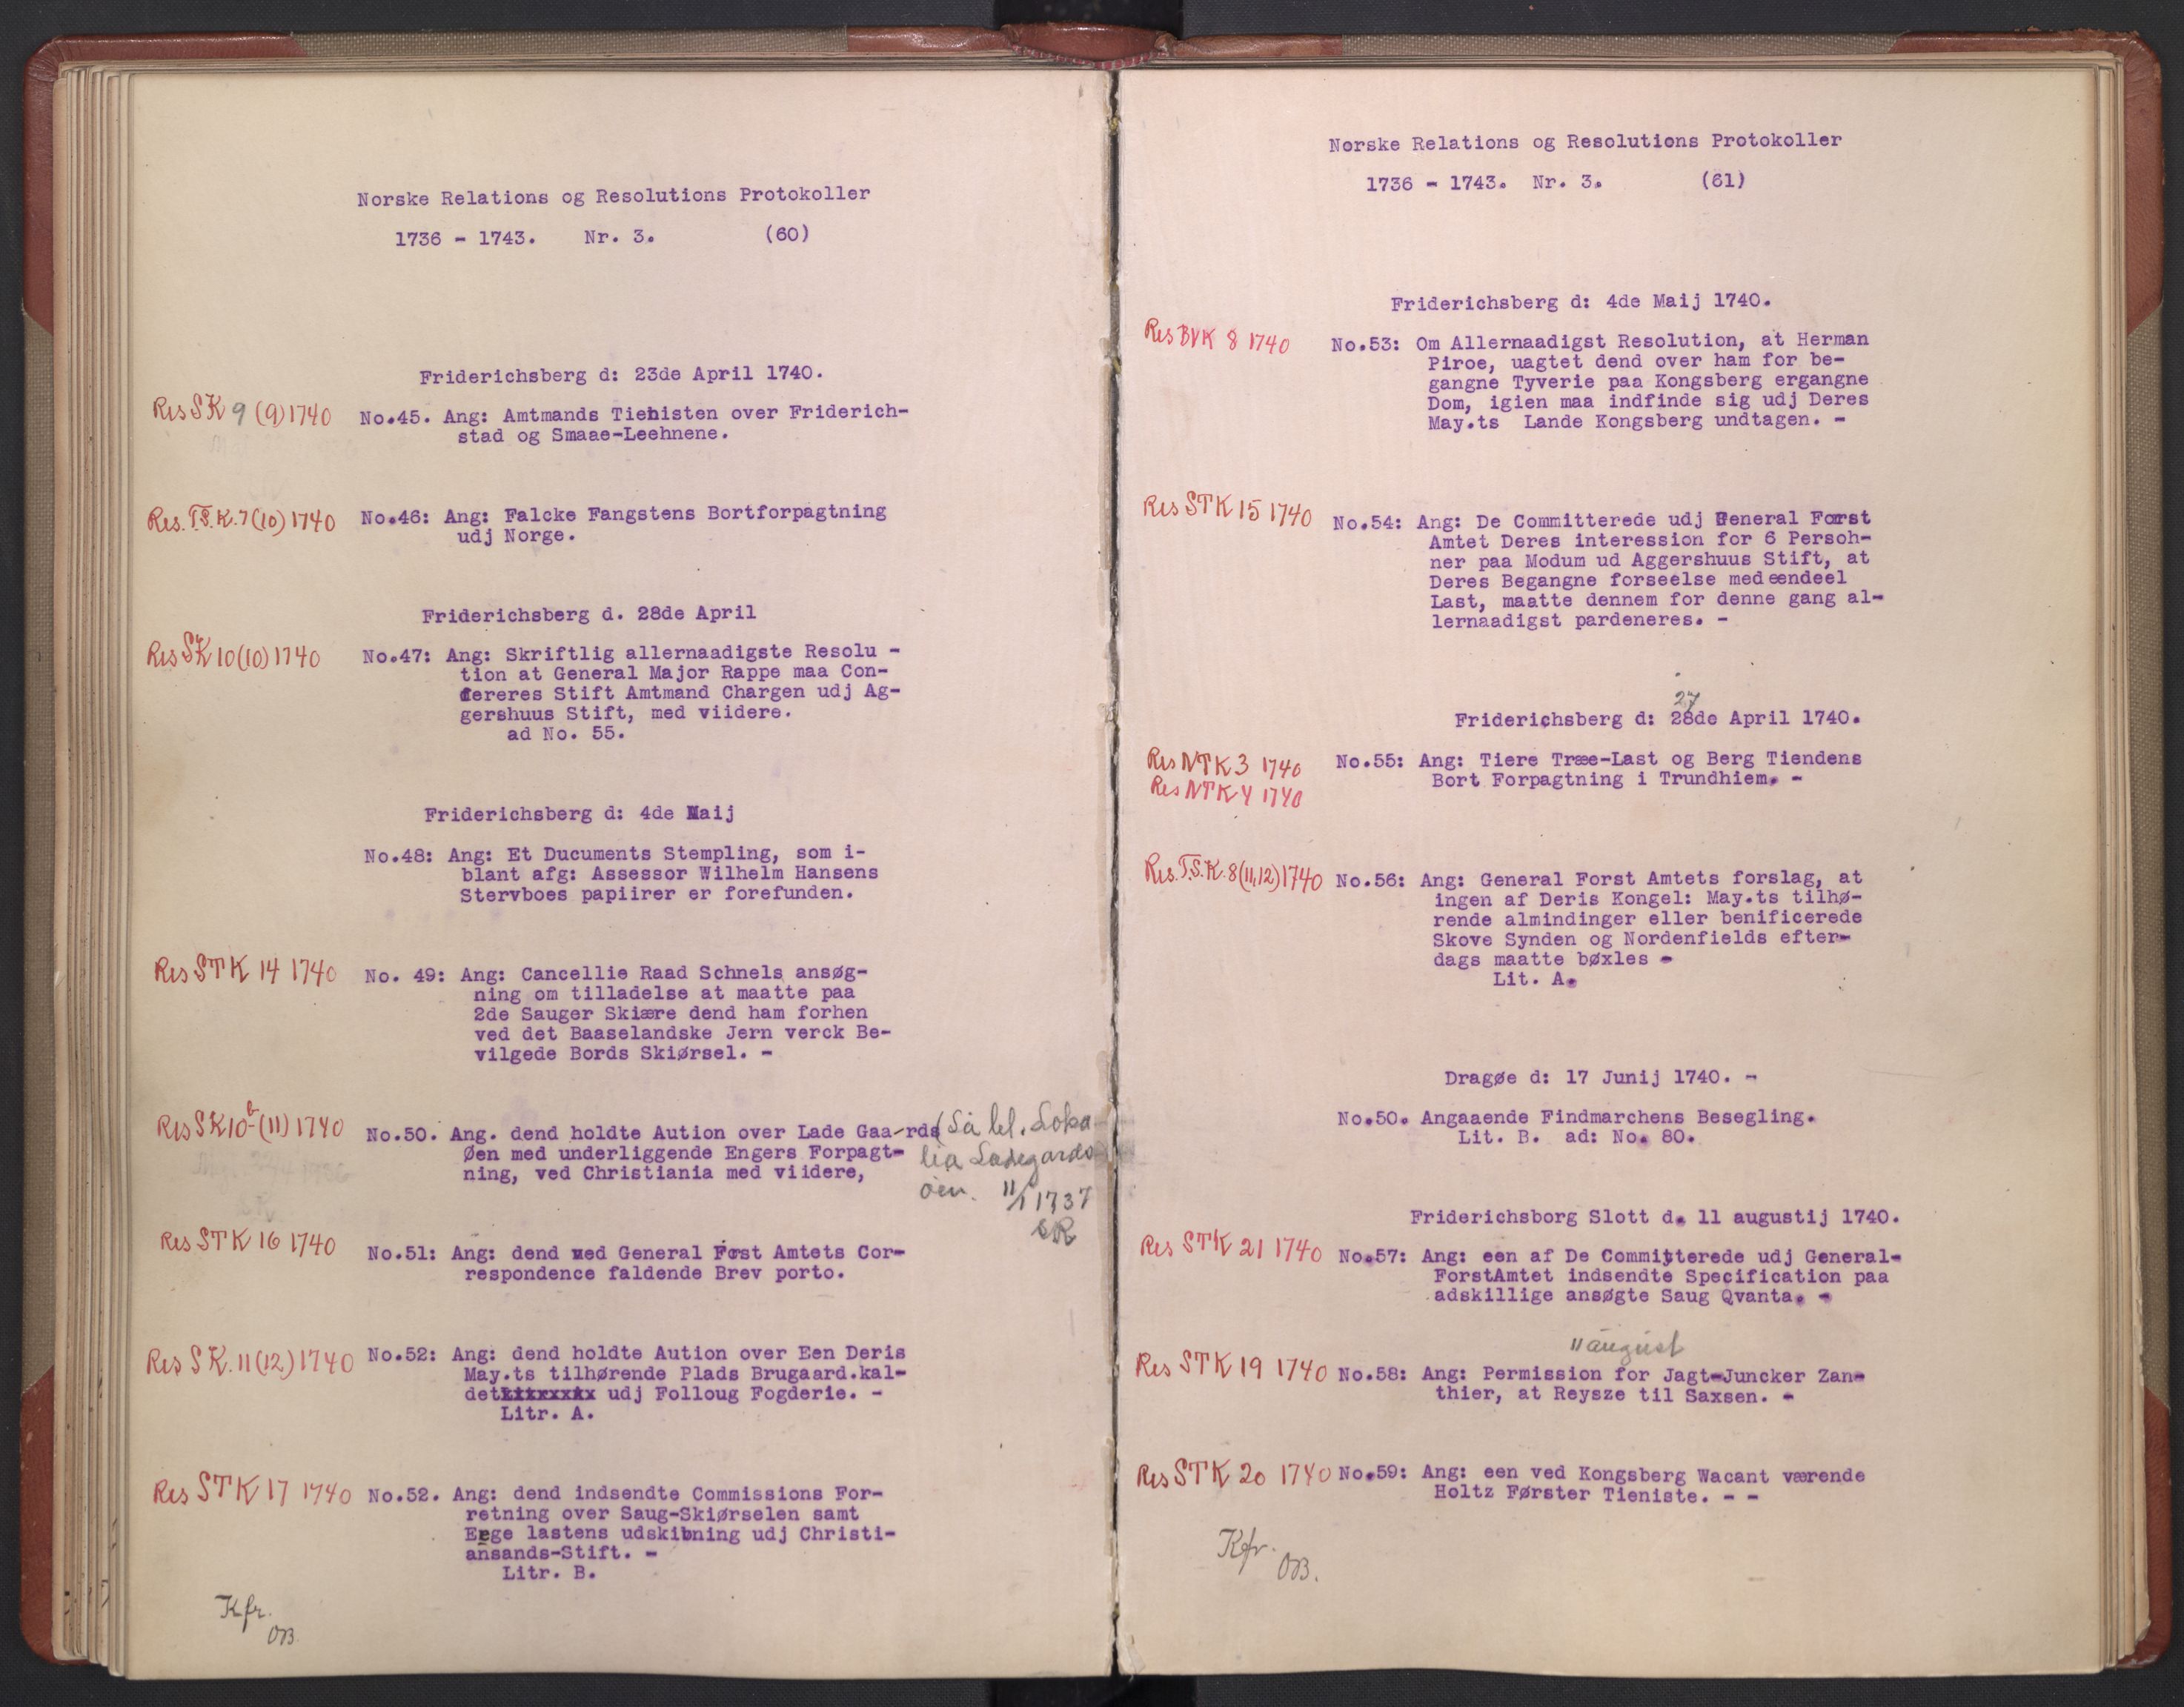 Norske Relations og Resolutions Protokoller
1736 - 1743. Nr. 3. (60)
Friderichsberg d: 23de April 1740.
Res SK 9 (9) 1740 No.45. Ang: Amtmands Tienisten over Friderich-
stad og Smaae-Leehnene.
Res. T.S.K. 7 (10) 1740 No.46: Ang: Falcke Fangstens Bortforpagtning
udj Norge.
Friderichsberg d. 28de April
Res SK 10 (10) 1740 No.47: Ang: Skriftlig allernaadigste Resolu -
tion at General Major Rappe maa Con-
fereres Stift Amtmand Chargen udj Ag-
gershuus Stift, med viidere.
ad No. 55.
Friderichsberg d: 4de Maij
No.48: Ang: Et Ducuments Stempling, som i-
blant afg: Assessor Wilhelm Hansens
Stervboes papiirer er forefunden.
Res STK 14 1740 No. 49: Ang: Cancellie Raad Schnels ansøg-
ning om tilladelse at maatte paa
2de Sauger Skiære dend ham forhen
ved det Baaselandske Jern verck Be-
vilgede Bords Skiørsel. -
Res SK 10 b (11) 1740 No.50. Ang. dend holdte Aution over Lade Gaards (Sá lel. Loka-
Øen med underliggende Engers Forpagt- lia Ladegards
ning, ved Christiania med viidere, öen. 11/1 1737
SR
Res STK 16 1740 No.51: Ang: dend med General Forst Amtets Cor-
respondence faldende Brev porto.
Res SK. 11 (12) 1740 No.52: Ang: dend holdte Aution over Een Deris
May.ts tilhørende Plads Brugaard.kal-
det udj Folloug Fogderie. -
Litr. A.
Res STK 17 1740 No.52. Ang: dend indsendte Commissions For-
retning over Saug-Skiørselen samt
Ege lastens udskibning udj Christi-
ansands-Stift. -
Litr. B.
Kfr.
OB.
Norske Relations og Resolutions Protokoller
1736 - 1743. Nr. 3. (61)
Friderichsberg d: 4de Maij 1740.
Res BVK 8 1740 No.53: Om Allernaadigst Resolution, at Herman
Piroe, uagtet dend over ham for be-
gangne Tyverie paa Kongsberg ergangne
Dom, igien maa indfinde sig udj Deres
May.ts Lande Kongsberg undtagen. -
Res STK 15 1740 No.54: Ang: De Committerede udj General Forst
Amtet Deres interession for 6 Persoh-
ner paa Modum ud Aggershuus Stift, at
Deres Begangne forseelse med eendeel
Last, maatte dennem for denne gang al-
lernaadigst pardeneres. -
27
Friderichsberg d: 28de April 1740.
Res NTK 3 1740 No.55: Ang: Tiere Træe-Last og Berg Tiendens
Res NTK 4 1740 Bort Forpagtning i Trundhiem. -
Res. T.S.K. 8 (11,12) 1740 No.56: Ang: General Forst Amtets forslag, at
ingen af Deris Kongel: May.ts tilhø-
rende almindinger eller benificerede
Skove Synden og Nordenfields efter-
dags maatte bøxles -
Lit. A.
Dragøe d: 17 Junij 1740. -
No.50. Angaaende Findmarchens Besegling.
Lit. B. ad: No. 80.
Friderichsborg Slott d. 11 augustij 1740.
Res STK 21 1740 No.57: Ang: een af De Committerede udj General-
ForstAmtet indsendte Specification paa
adskillige ansøgte Saug Qvanta. -
11 august
Res STK 19 1740 No.58: Ang: Permission for Jagt-Juncker Zan-
thier, at Reysze til Saxsen. -
Res STK 20 1740 No.59: Ang: een ved Kongsberg Wacant værende
Holtz Førster Tieniste. - -
Kfr.
OB.